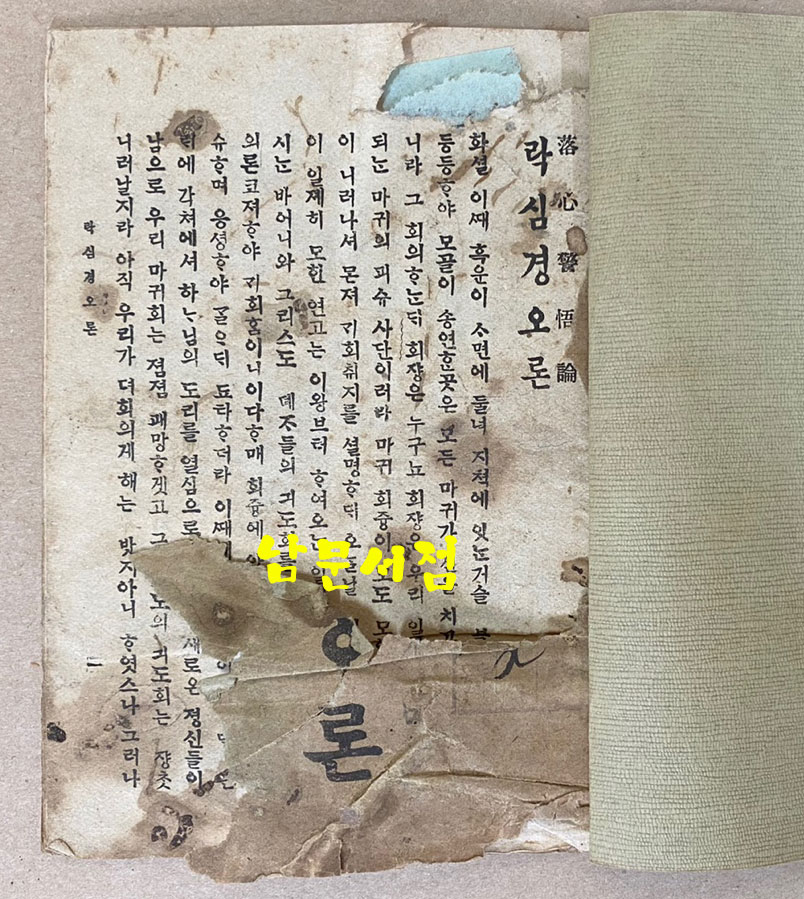 落心警悟論
락심경오론
화셜 이ᄯᅢ 흑운이 ᄉᆞ면에 둘녀 지쳑에 잇ᄂᆞᆫ거슬
등등ᄒᆞ야 모골이 송연ᄒᆞᆫ곳은 모든 마귀가
니라 그 회의ᄒᆞᄂᆞᆫᄃᆡ 회쟝은 누구뇨 회쟝은 우리
되ᄂᆞᆫ 마귀의 괴슈 사단이러라 마귀 회즁이
이 니러나셔 몬져 긔회취지를 셜명ᄒᆞᄃᆡ 오ᄂᆞᆯ날
이 일졔히 모힌 연고는 이왕브터 ᄒᆞ여오는 일
시ᄂᆞᆫ 바어니와 그리스도 뎨ᄌᆞ들의 긔도회를
의론코져ᄒᆞ야 긔회홈이니이다ᄒᆞ매 회즁에
슈ᄒᆞ며 응셩ᄒᆞ야 ᄀᆞᆯᄋᆞᄃᆡ 됴타ᄒᆞ더라 이ᄯᅢ에
각쳐에셔 하ᄂᆞ님의 도리를 열심으로 새로온 졍신들이
남으로 우리 마귀회는 졈졈 패망ᄒᆞ겟고 그 긔도회는 쟝ᄎᆞᆺ
니러날지라 아직 우리가 뎌희의게 해는 밧지아니 ᄒᆞ엿스나 그러나
락심경오론
一
오론
남문서점